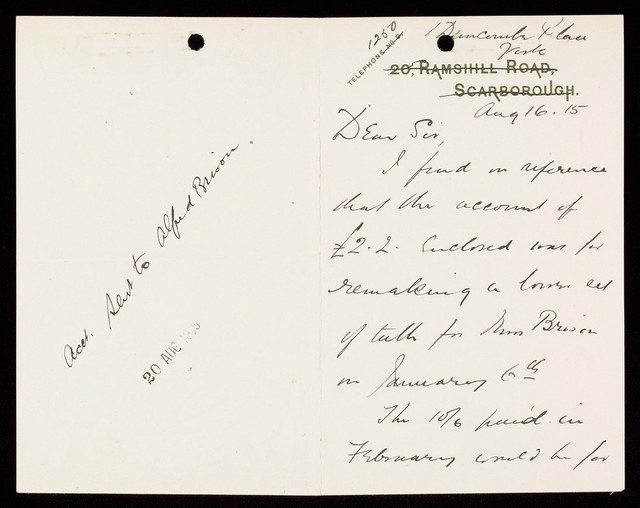 Acct. sent to Alfred Brison.
20 AUG 1915
TELEPHONE No 9.
1250
1 Duncombe Place
York
20, RAMSHILL ROAD,
SCARBOROUGH.
Aug 16. 15
Dear Sir,
I find on reference
that the account of
£2.2. Enclosed was for
remaking a lower set
of teeth for Miss Brison
on January 6th
The 10/6 paid in
February would be for